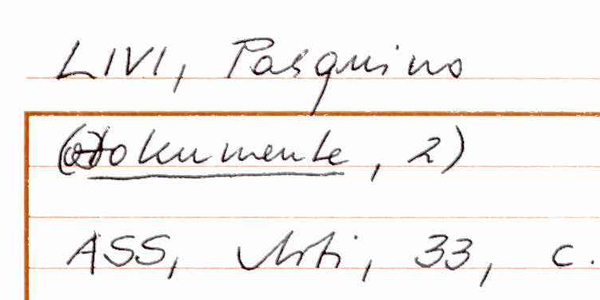 LIVI, Pasquino
(Dokumente, 2)
ASS, Arti, 33, c.